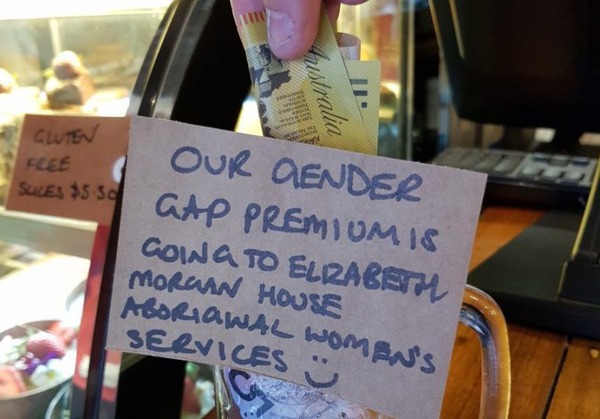 Australia
GLUTEN
FREE
SLICES $5.50
OUR GENDER
GAP PREMIUM IS
GOING TO ELIZABETH
MORGAN HOUSE
ABORIGINAL WOMEN'S
SERVICES